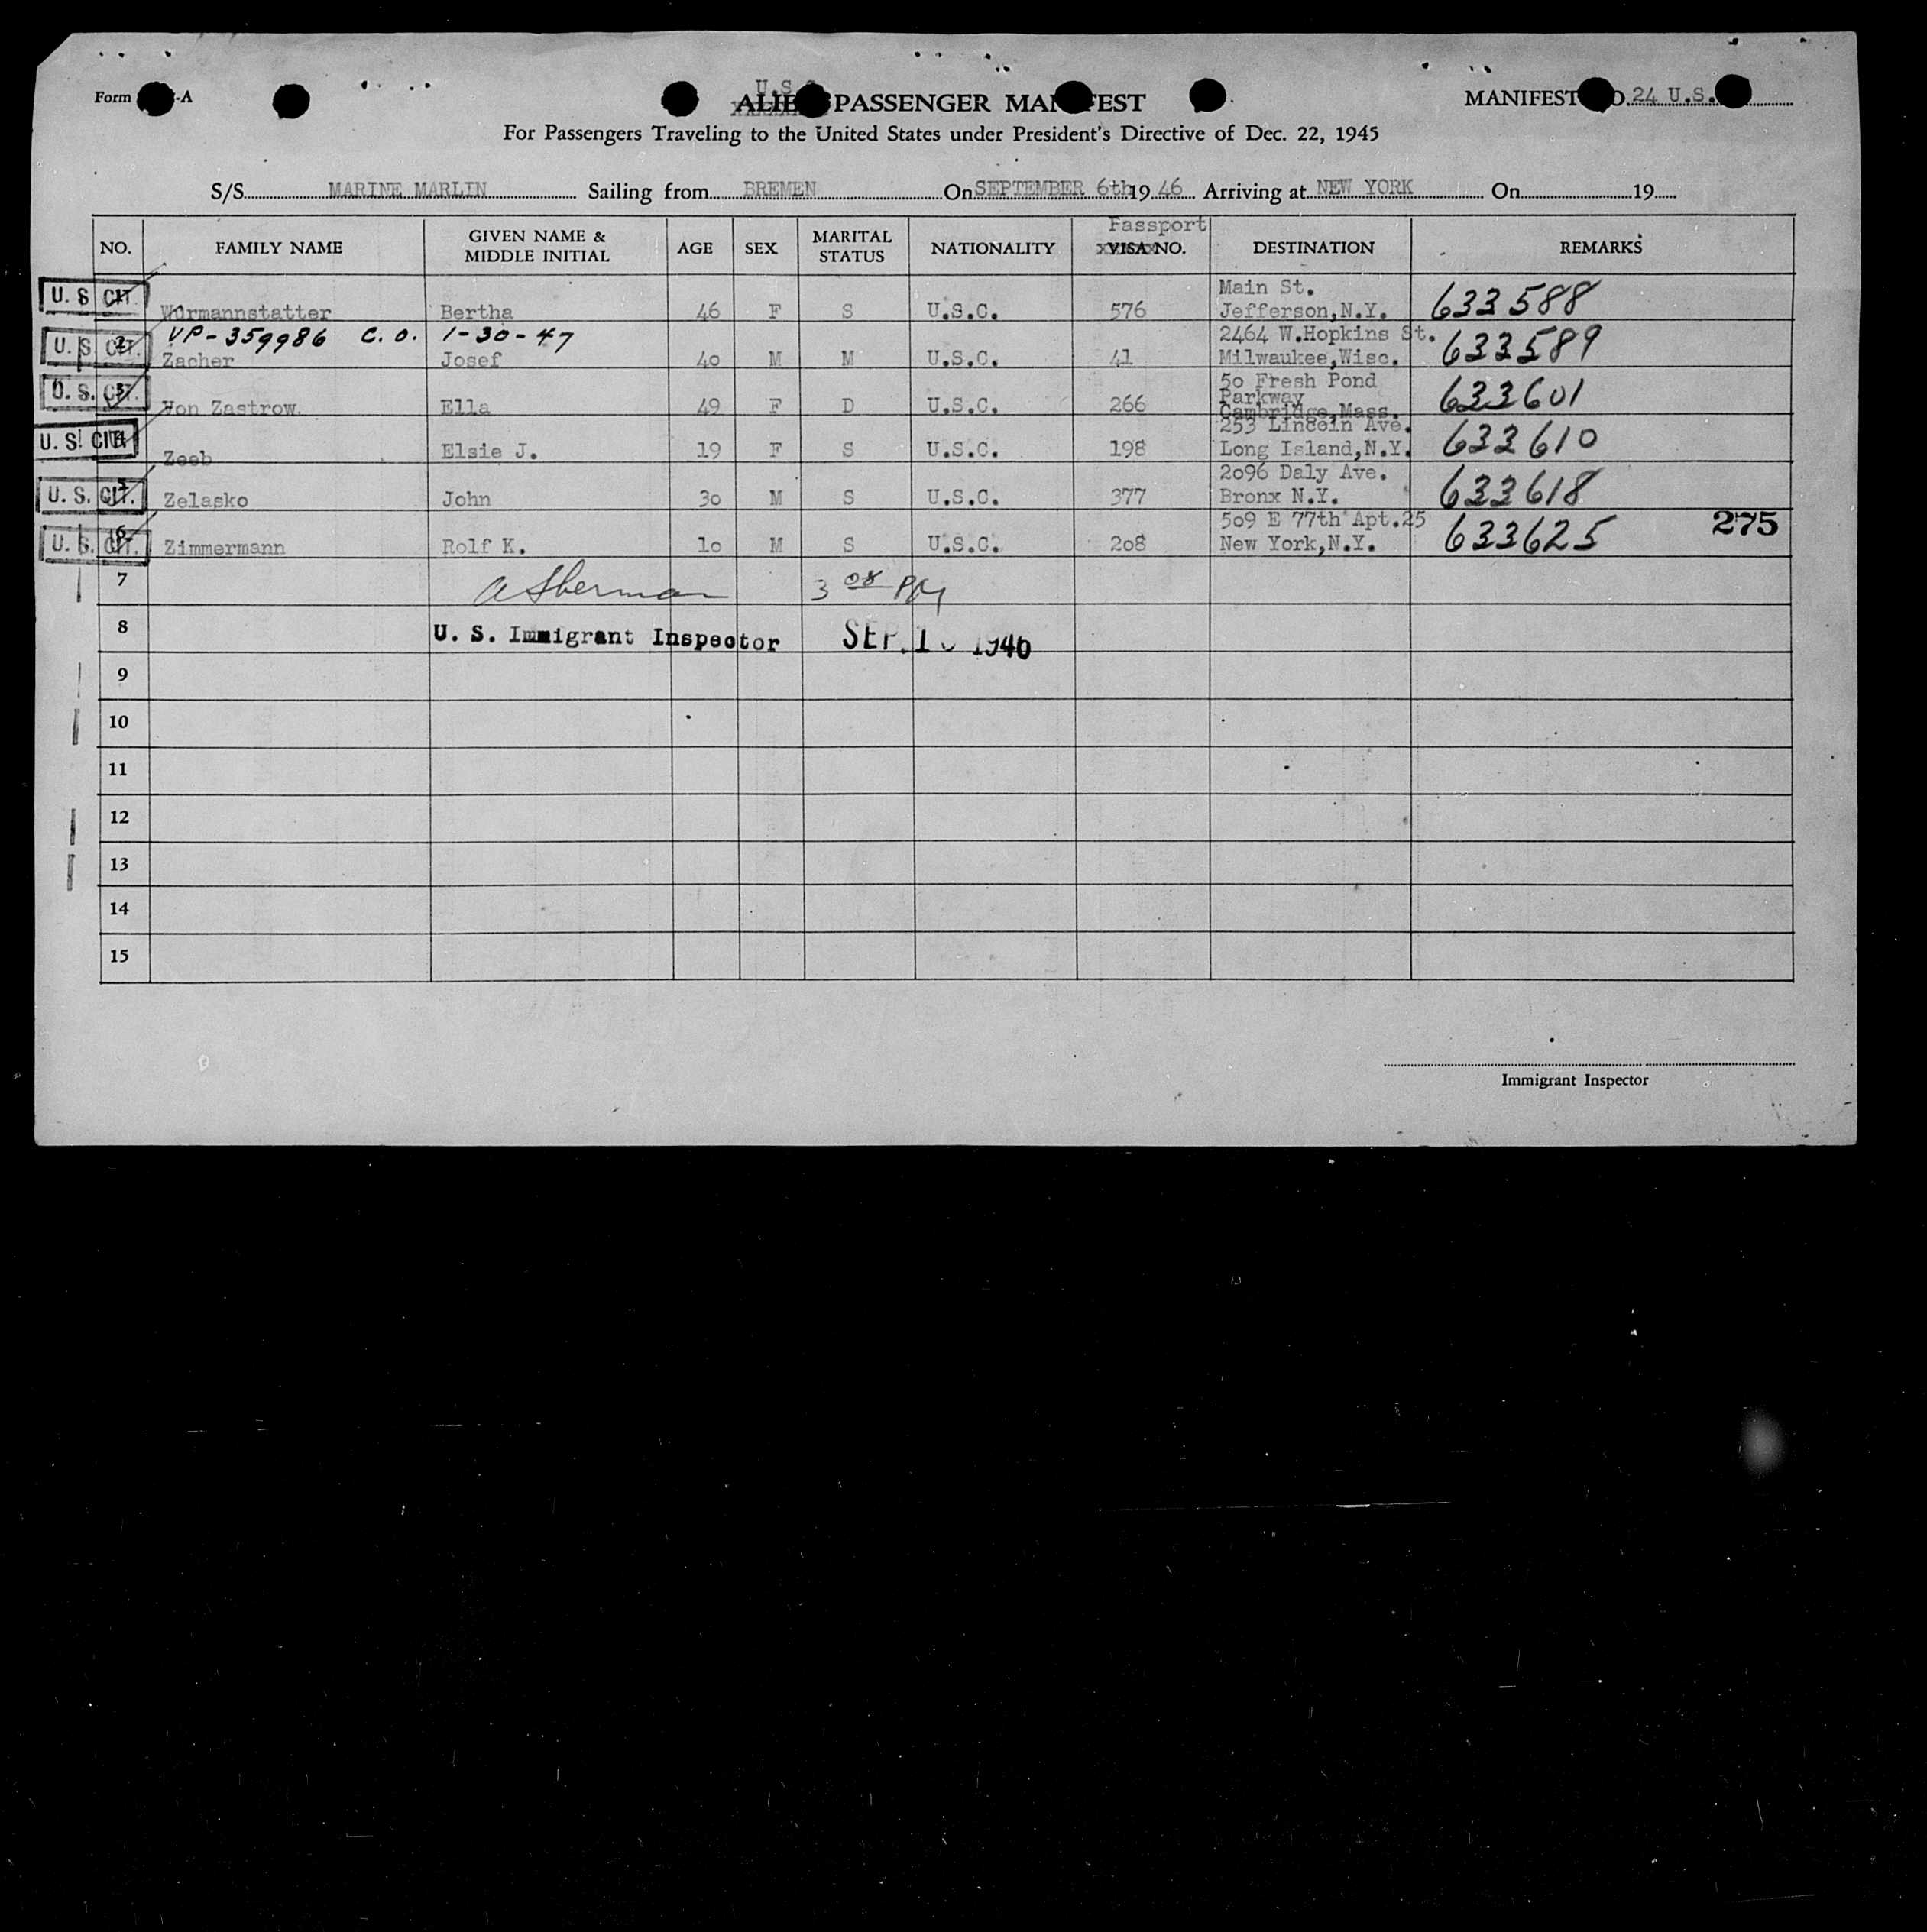 Form -A
U.S.
ALIEN PASSENGER MANIFEST
MANIFEST NO. 24 U.S.
For Passengers Traveling to the United States under President's Directive of Dec. 22, 1945
S/S MARINE MARLIN Sailing from BREMEN On SEPTEMBER 6th 19 46 Arriving at NEW YORK On 19
Passport
NO. FAMILY NAME GIVEN NAME & MIDDLE INITIAL AGE SEX MARITAL STATUS NATIONALITY VISA NO. DESTINATION REMARKS
U. S. CIT. 1 Wurmannstatter Bertha 46 F S U.S.C. 576 Main St. Jefferson,N.Y. 633588
VP-359986 C.O. 1-30-47
U. S. CIT. 2 Zacher Josef 40 M M U.S.C. 41 2464 W.Hopkins St. Milwaukee,Wisc. 633589
U. S. CIT. 3 Von Zastrow Ella 49 F D U.S.C. 266 50 Fresh Pond Parkway Cambridge,Mass. 633601
U. S. CIT. 4 Zeeb Elsie J. 19 F S U.S.C. 198 253 Lincoln Ave. Long Island,N.Y. 633610
U. S. CIT. 5 Zelasko John 30 M S U.S.C. 377 2096 Daly Ave. Bronx N.Y. 633618
U. S. CIT. 6 Zimmermann Rolf K. 10 M S U.S.C. 208 509 E 77th Apt.25 New York,N.Y. 633625 275
7 A Sherman 3 08 PM
8 U. S. Immigrant Inspector SEP. 1 1946
9
10
11
12
13
14
15
Immigrant Inspector